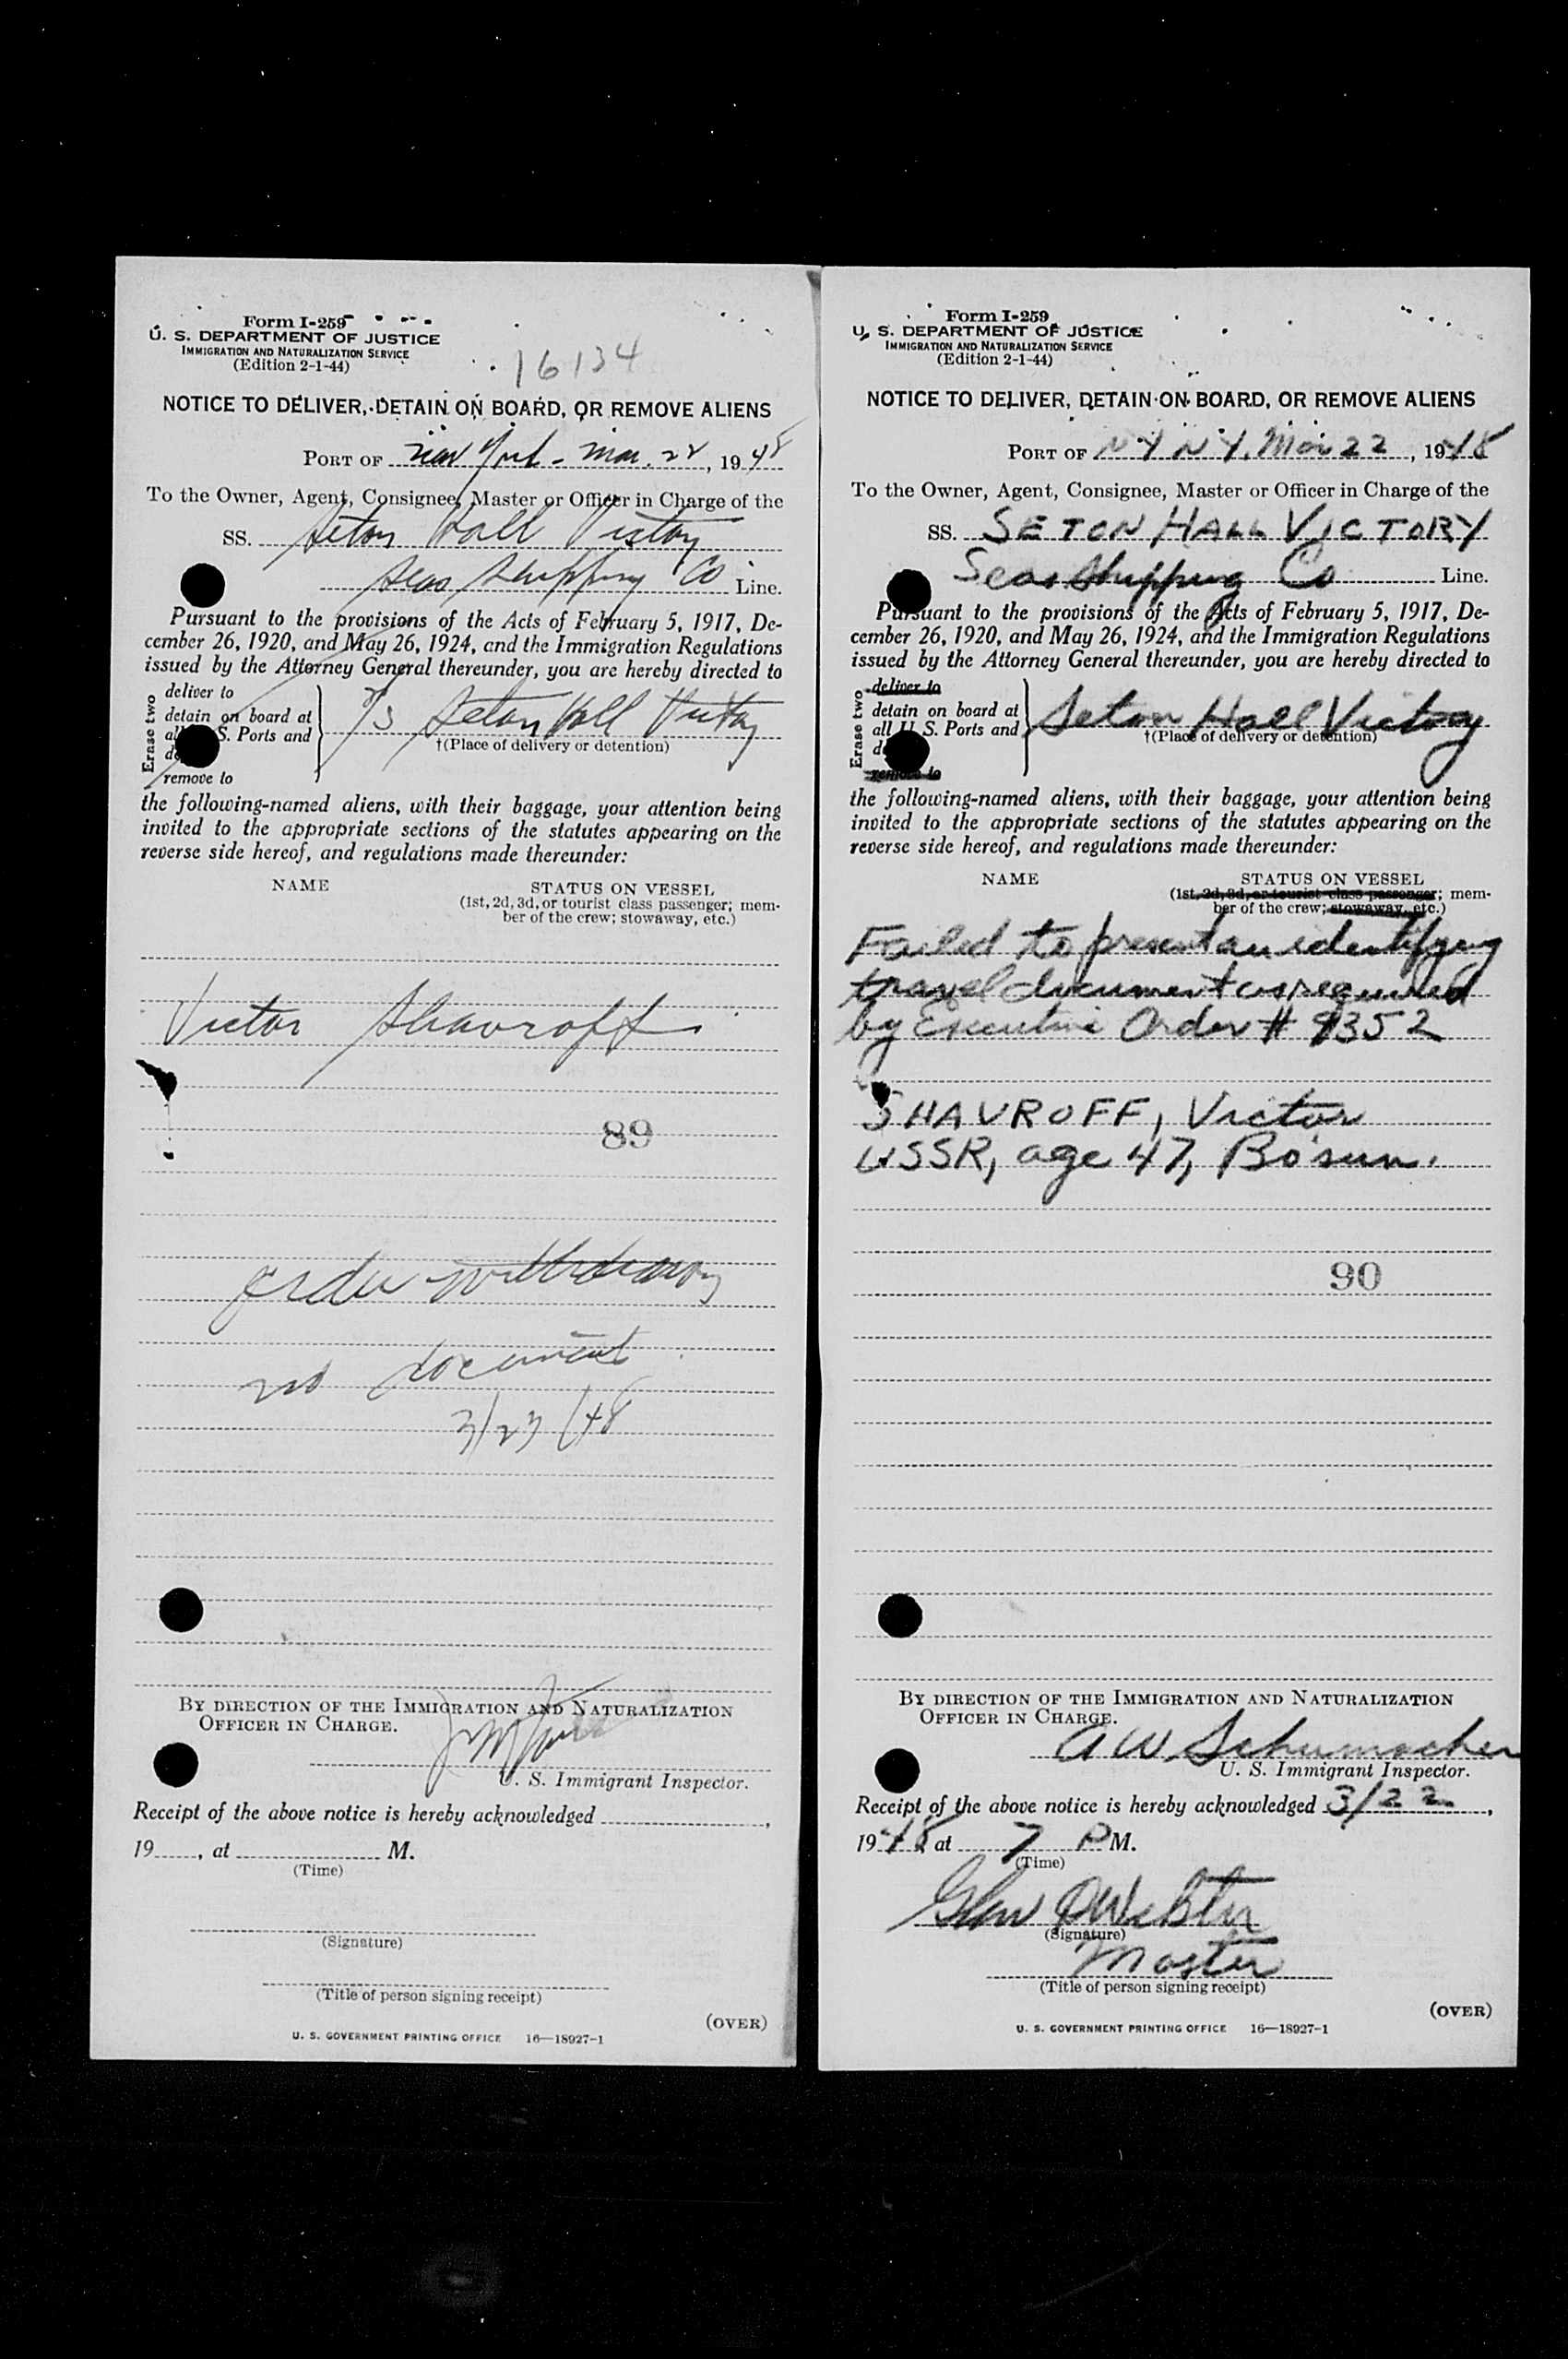 Form I-259
U. S. DEPARTMENT OF JUSTICE
IMMIGRATION AND NATURALIZATION SERVICE
(Edition 2-1-44)
16134
NOTICE TO DELIVER, DETAIN ON BOARD, OR REMOVE ALIENS
PORT OF New York - Mar. 22, 1948
To the Owner, Agent, Consignee, Master or Officer in Charge of the
SS. Seton Hall Victory
Seas Shipping Co Line.
Pursuant to the provisions of the Acts of February 5, 1917, De-
cember 26, 1920, and May 26, 1924, and the Immigration Regulations
issued by the Attorney General thereunder, you are hereby directed to
Erase two
deliver to
detain on board at
all S. Ports and
remove to
Seton Hall Victory
†(Place of delivery or detention)
the following-named aliens, with their baggage, your attention being
invited to the appropriate sections of the statutes appearing on the
reverse side hereof, and regulations made thereunder:
NAME
STATUS ON VESSEL
(1st, 2d, 3d, or tourist class passenger; mem-
ber of the crew; stowaway, etc.)
Victor Shavroff
89
order withdrawn
no document
3/23/48
BY DIRECTION OF THE IMMIGRATION AND NATURALIZATION
OFFICER IN CHARGE.
U. S. Immigrant Inspector.
Receipt of the above notice is hereby acknowledged ,
19 , at M.
(Time)
(Signature)
(Title of person signing receipt)
(OVER)
U. S. GOVERNMENT PRINTING OFFICE 16—18927-1
Form I-259
U. S. DEPARTMENT OF JUSTICE
IMMIGRATION AND NATURALIZATION SERVICE
(Edition 2-1-44)
NOTICE TO DELIVER, DETAIN ON BOARD, OR REMOVE ALIENS
PORT OF N Y N Y. Mar 22, 1948
To the Owner, Agent, Consignee, Master or Officer in Charge of the
SS. SETON HALL VICTORY
Seas Shipping Co Line.
Pursuant to the provisions of the Acts of February 5, 1917, De-
cember 26, 1920, and May 26, 1924, and the Immigration Regulations
issued by the Attorney General thereunder, you are hereby directed to
Erase two
deliver to
detain on board at
all U. S. Ports and
remove to
Seton Hall Victory
†(Place of delivery or detention)
the following-named aliens, with their baggage, your attention being
invited to the appropriate sections of the statutes appearing on the
reverse side hereof, and regulations made thereunder:
NAME
STATUS ON VESSEL
(1st, 2d, 3d, or tourist class passenger; mem-
ber of the crew; stowaway, etc.)
Failed to present an identifying
travel document as required
by Executive Order # 9352
SHAVROFF, Victor
USSR, age 47, Bo'sun.
90
BY DIRECTION OF THE IMMIGRATION AND NATURALIZATION
OFFICER IN CHARGE.
A W Schumacher
U. S. Immigrant Inspector.
Receipt of the above notice is hereby acknowledged 3/22,
1948 at 7 P M.
(Time)
Glen Webster
(Signature)
Master
(Title of person signing receipt)
(OVER)
U. S. GOVERNMENT PRINTING OFFICE 16—18927-1